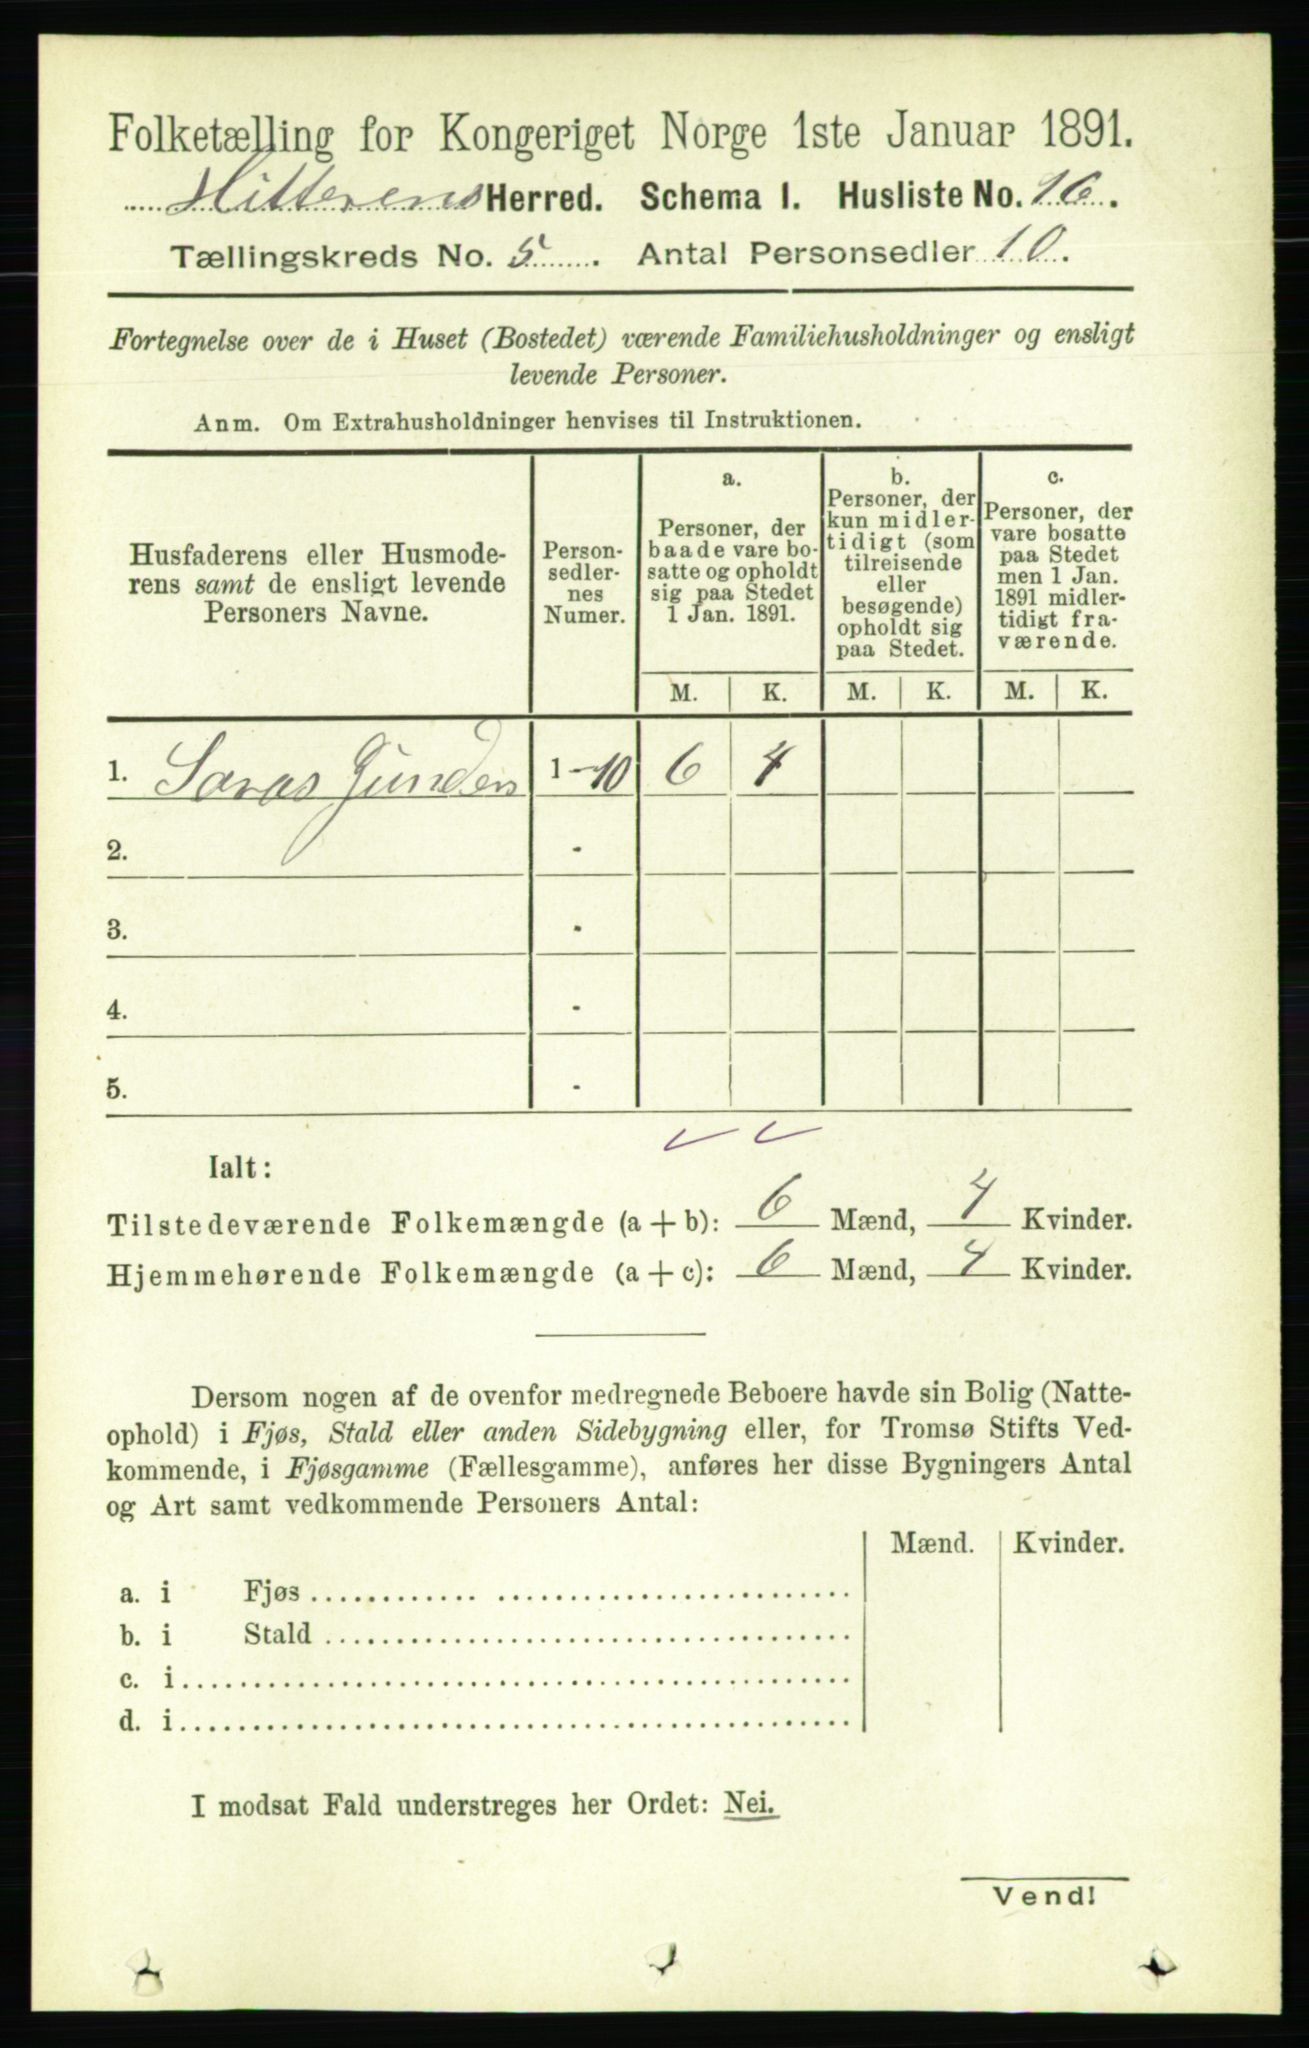 Folketælling for Kongeriget Norge 1ste Januar 1891.
Hitterens Herred. Schema I. Husliste No. 16.
Tællingskreds No. 5. Antal Personsedler 10.
Fortegnelse over de i Huset (Bostedet) værende Familiehusholdninger og ensligt
levende Personer.
Anm. Om Extrahusholdninger henvises til Instruktionen.
Husfaderens eller Husmode-
rens samt de ensligt levende
Personers Navne.
Person-
sedler-
nes
Numer.
a.
Personer, der
baade vare bo-
satte og opholdt
sig paa Stedet
1 Jan. 1891.
b.
Personer, der
kun midler-
tidigt (som
tilreisende
eller
besøgende)
opholdt sig
paa Stedet.
c.
Personer, der
vare bosatte
paa Stedet
men 1 Jan.
1891 midler-
tidigt fra-
værende.
M. K. M. K. M. K.
1. 1-10 6 4
2. -
3. -
4. -
5. -
Ialt:
Tilstedeværende Folkemængde (a + b): 6 Mænd, 4 Kvinder.
Hjemmehørende Folkemængde (a + c): 6 Mænd, 4 Kvinder.
Dersom nogen af de ovenfor medregnede Beboere havde sin Bolig (Natte-
ophold) i Fjøs, Stald eller anden Sidebygning eller, for Tromsø Stifts Ved-
kommende, i Fjøsgamme (Fællesgamme), anføres her disse Bygningers Antal
og Art samt vedkommende Personers Antal:
Mænd. Kvinder.
a. i Fjøs
b. i Stald
c. i
d. i
I modsat Fald understreges her Ordet: Nei.
Vend!